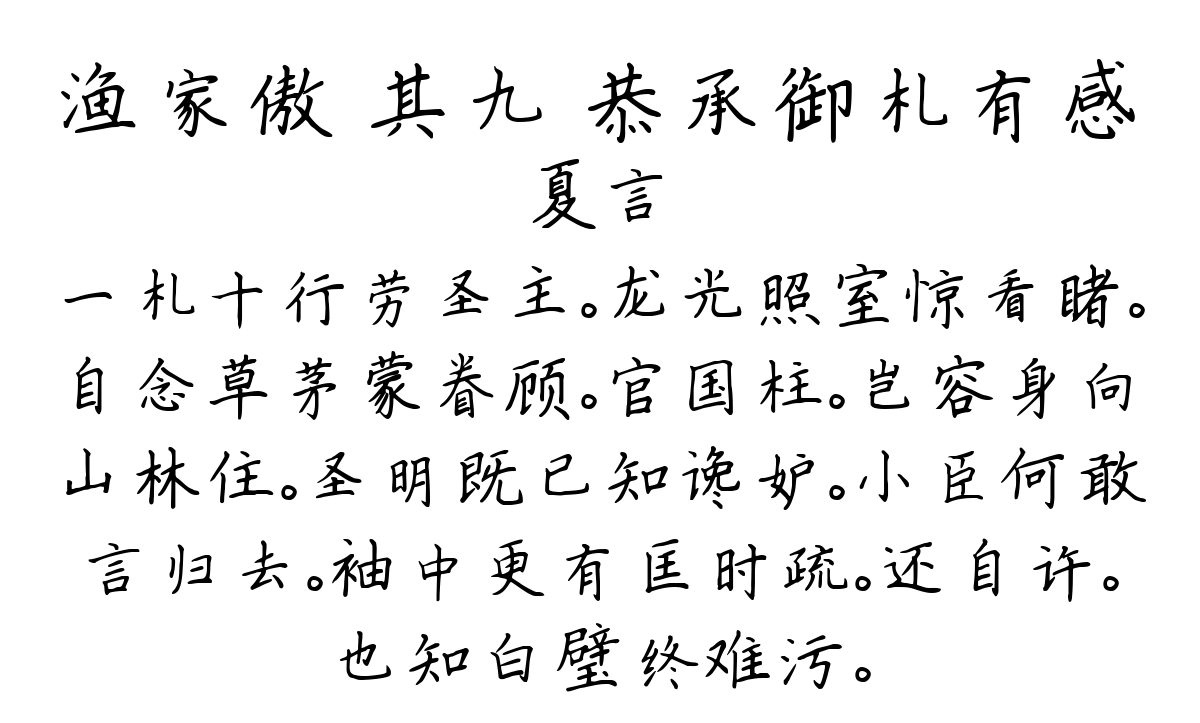 渔家傲 其九 恭承御札有感
夏言
一札十行劳圣主。龙光照室惊看睹。
自念草茅蒙眷顾。官国柱。岂容身向
山林住。圣明既已知谗妒。小臣何敢
言归去。袖中更有匡时疏。还自许。
也知白璧终难污。